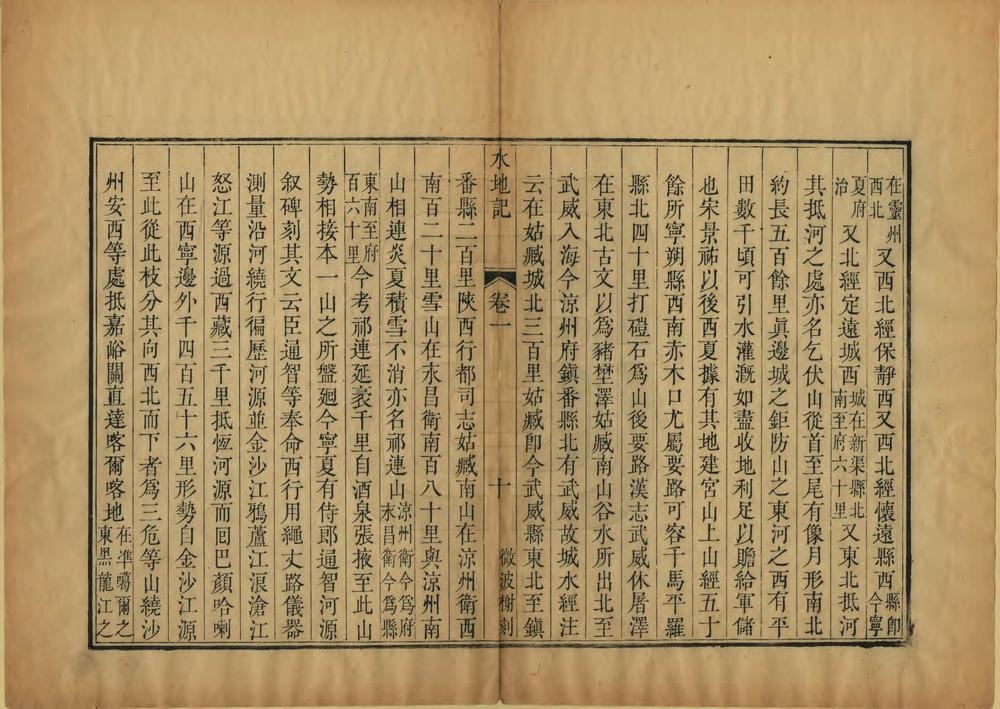 在靈州西北又西北經保靜西又西北經懷遠縣西縣即今寧
夏府治又北經定遠城西城在新渠縣北南至府六十里又東北抵河
其抵河之處亦名乞伏山從首至尾有像月形南北
約長五百餘里真邊城之鉅防山之東河之西有平
田數千頃可引水灌漑如盡收地利足以贍給軍儲
也宋景祐以後西夏據有其地建宮山上山經五十
餘所寧朔縣西南赤木口尤屬要路可容千馬平羅
縣北四十里打磑石爲山後要路漢志武威休屠澤
在東北古文以爲豬壄澤姑臧南山谷水所出北至
武威入海今涼州府鎮番縣北有武威故城水經注
云在姑臧城北三百里姑臧卽今武威縣東北至鎮
水地記 卷一 十 微波榭刻
番縣二百里陝西行都司志姑臧南山在涼州衛西
南百二十里雪山在永昌衛南百八十里與涼州南
山相連炎夏積雪不消亦名祁連山涼州衛今爲府永昌衛今爲縣
東南至府百六十里今考祁連延袤千里自酒泉張掖至此山
勢相接本一山之所盤廻今寧夏有侍郎通智河源
叙碑刻其文云臣通智等奉命西行用繩丈路儀器
測量沿河繞行徧歷河源並金沙江鴉蘆江浪滄江
怒江等源過西藏三千里抵恆河源而回巴顏哈喇
山在西寧邊外千四百五十六里形勢自金沙江源
至此從此枝分其向西北而下者爲三危等山繞沙
州安西等處抵嘉峪關直達喀爾喀地在準噶爾之東黑龍江之